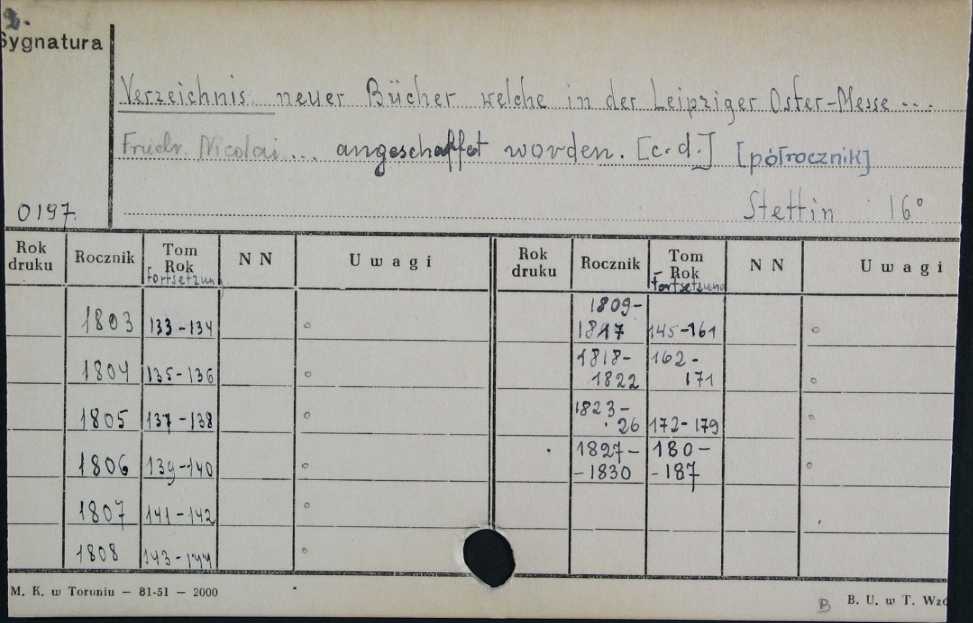 2.
Sygnatura
Verzeichnis neuer Bücher welche in der Leipziger Oster-Messe ...
Friedr. Nicolai ... angeschaffet worden. [c.d.] [półrocznik]
0197. Stettin 16°
Rok druku Rocznik Tom Rok Fortsetzun N N Uwagi Rok druku Rocznik Tom Rok Fortsetzung N N Uwagi
1803 133-134 1809-1817 145-161
1804 135-136 1818-1822 162-171
1805 137-138 1823-26 172-179
1806 139-140 1827--1830 180--187
1807 141-142
1808 143-144
M. K. w Toruniu — 81-51 — 2000
B B. U. w T. Wzó